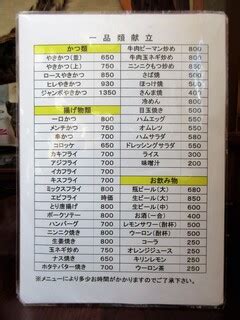 一品類献立
かつ類
やきかつ(並) 650
やきかつ(上) 750
ロースやきかつ 850
ヒレやきかつ 930
ジャンボやきかつ 1350
揚げ物類
一口かつ 800
メンチかつ 750
串かつ 700
コロッケ 650
カキフライ 700
アジフライ 700
イカフライ 700
キスフライ 700
ミックスフライ 800
エビフライ 時価
とり唐揚げ 800
ポークソテー 800
ハンバーグ 700
ニンニク焼き 800
生姜焼き 800
玉ネギ炒め 750
ナス焼き 650
ホタテバター焼き 700
牛肉ピーマン炒め 800
牛肉玉ネギ炒め 800
ニンニクもつ炒め 650
さば焼
ほっけ焼
さんま焼
冷めん 800
目玉焼き
ハムエッグ
オムレツ
ハムサラダ
ドレッシングサラダ
ライス 300
味噌汁
お飲み物
瓶ビール(大) 680
生ビール(大) 850
生ビール(中)
お酒(一合) 400
レモンサワー(酎杯)
ウーロン(酎杯)
コーラ
オレンジジュース
キリンレモン
ウーロン茶
※メニューにより多少お時間がかかりますのでご了承下さい。